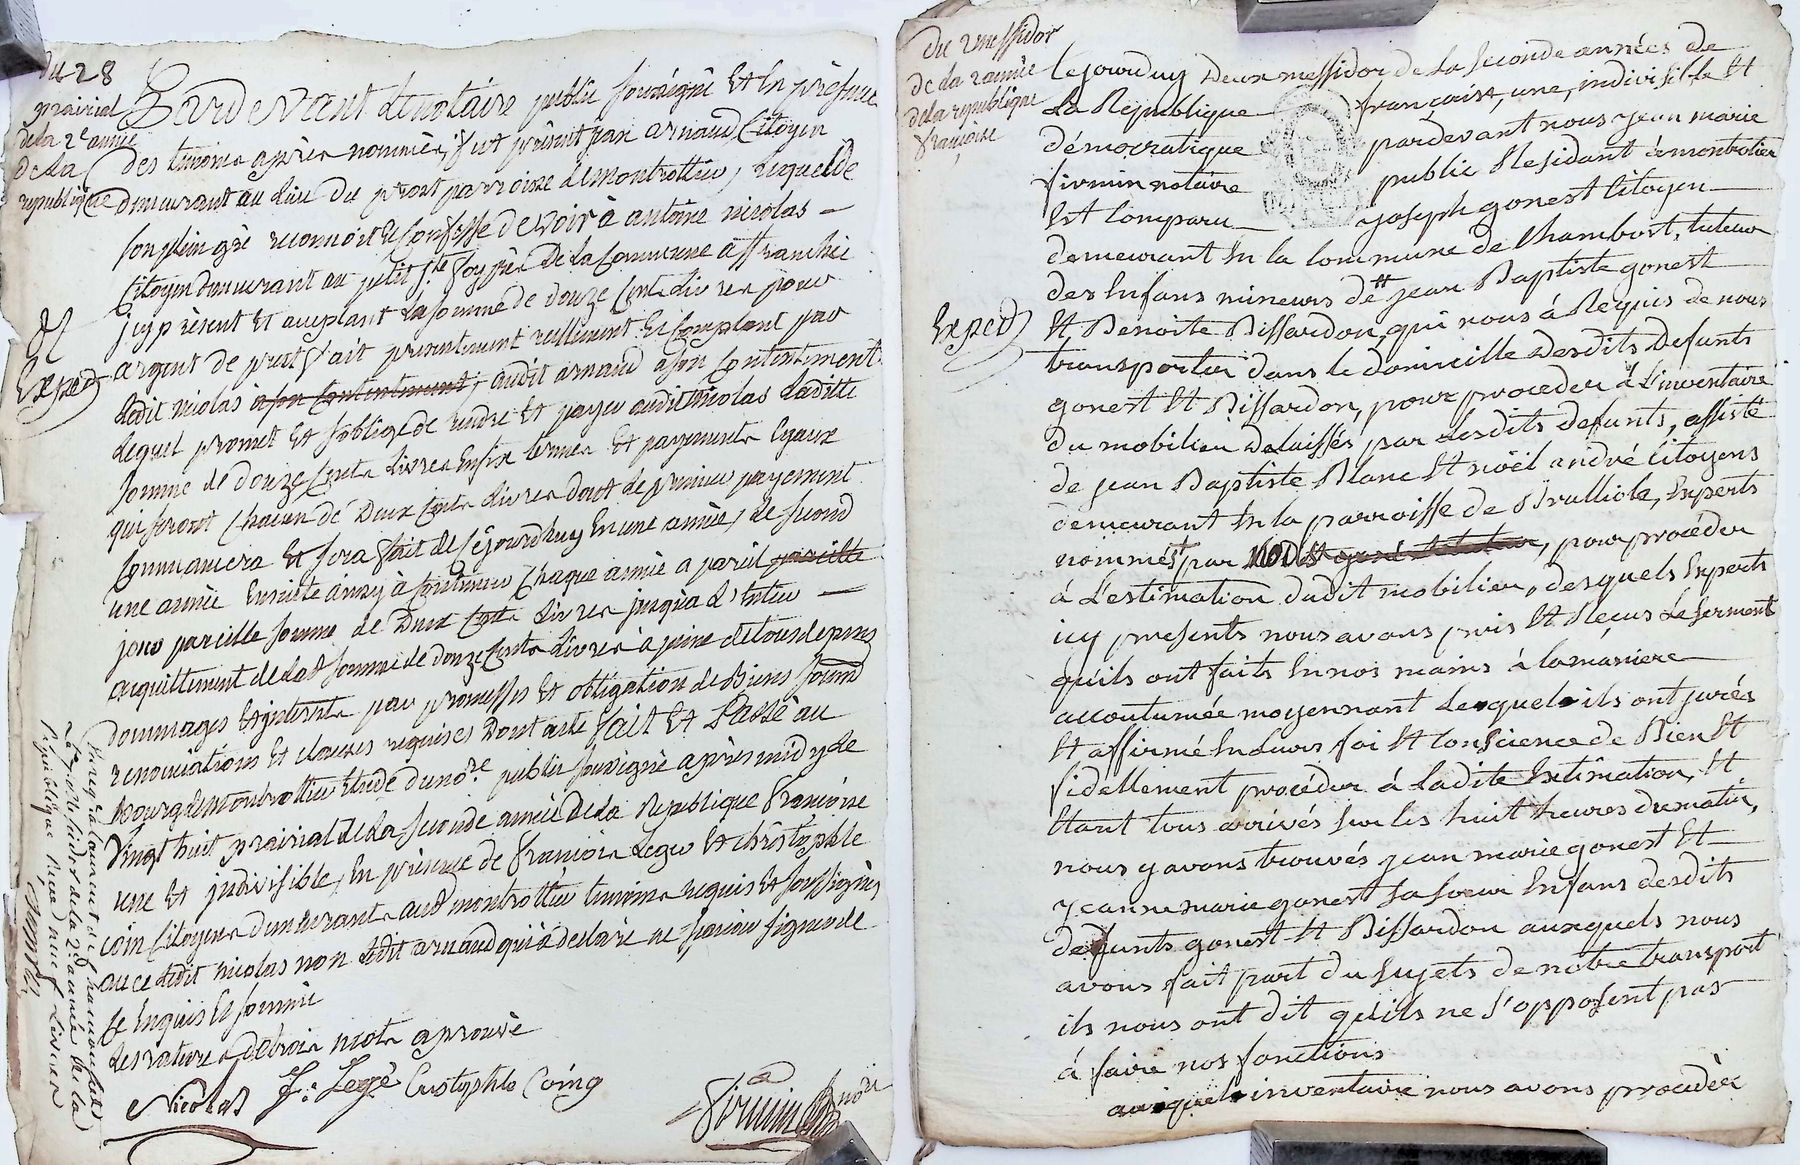 du 28
prairial
de la 2e année
de la
republique
Pardevant le notaire public soussigné Et En présence
des temoins après nommés, fut présent jean arnaud Citoyen
demeurant au lieu du prost parroisse de montrottier, lequel de
son plein gré reconnoit Et Confesse devoir à antoine nicolas –
Citoyen demeurant au petit Ste foy près De La Commune affranchie
icy présent Et acceptant La somme de douze Cents Livres pour
argent de prest fait présentement réellement Et Comptant par
Ledit nicolas a son Contentement, audit arnaud a son Contentement
Lequel promet Et s'oblige de rendre Et payer audit nicolas Laditte
somme de douze Cents Livres En six termes Et payements Egaux
qui seront Chacun de Deux Cents Livres dont le premier payement
Commancera Et sera fait de ce jourdhuy En une année, Le second
une année Ensuite ainsy à Continuer Chaque année a pareil pareille
jour pareille somme de Deux Cents Livres jusqu'a L'Entier –
acquittement de lad somme de douze Cents Livres à peine de tous depens
dommages Et interests par promesses Et obligation de Biens soumd
renonciations Et clauses requises Dont acte fait Et Passé au
Bourg de Montrottier Etude du nore public soussigné après midy Le
Vingt huit prairial de La seconde année de La Republique francoise
une Et indivisible, En présence de francois Leger Et christophle
coin Citoyens demeurants aud montrottier temoins requis Et soussignés
avec Ledit nicolas non Ledit arnaud qui à declaré ne savoir signer de
ce Enquis Et sommé
Les ratures de trois mots aprouvé
Nicolas
f. Legé
Custophle Coing
Firmin nore
Expéd
Enregistré à
la 2e année de la
Republique Recu neuf Livres
du 2 messidor
de la 2 année
de la republique
francoise
Expéd
Cejourduy Deux messidor de La seconde années de
La Republique françaises, une, indivisible Et
démocratique pardevant nous Jean marie
firmin notaire public Residant à montrotier
Est Comparu – Joseph gonest Citoyen –
demeurant En la Commune de Chambost, tuteur
des Enfans mineurs de tt Jean Baptiste gonest
Et Benoite Bissardon, qui nous à Requis de nous
transporter dans le domicille desdits defunts
gonest Et Bissardon, pour proceder à L'inventaire
du mobilier delaissés par lesdits defunts, assisté
de jean Baptiste Blanc Et noël andré Citoyens
demeurant En la parroisse de Experts
nommés par nous, pour procéder
à L'estimation dudit mobilier, desquels Experts
icy presents nous avons pris Et Reçus Le serment
quils ont faits En nos mains à la maniere
accoutumée moyennant Lequel ils ont jurés
Et affirmé En Leurs foi Et Conscience de Bien Et
fidellement procéder à Ladite Estimation, Et
Etant tous arrivés sur les huit heures du matin,
nous y avons trouvés jean marie gonest Et –
jeanne marie gonest sa soeur Enfans desdits
defunts gonest Et Bissardon auxquels nous
avons fait part du sujets de notre transport
ils nous ont dit quils ne s'opposent pas
à faire nos fonctions
auquel inventaire nous avons procédér